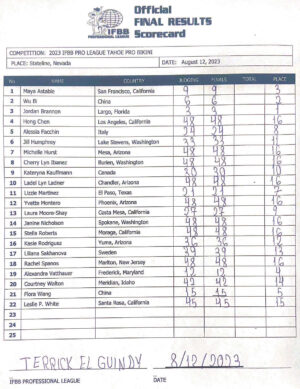 IFBB
PROFESSIONAL LEAGUE
Official
FINAL RESULTS
Scorecard
COMPETITION: 2023 IFBB PRO LEAGUE TAHOE PRO BIKINI
PLACE: Stateline, Nevada DATE: August 12, 2023
No NAME COUNTRY JUDGING FINALS TOTAL PLACE
1 Maya Astabie San Francisco, California 9 9 3
2 Wu Bi China 6 6 2
3 Jordan Brannon Largo, Florida 3 3 1
4 Hong Chen Los Angeles, California 48 48 16
5 Alessia Facchin Italy 24 24 8
6 Jill Humphrey Lake Stevens, Washington 33 33 11
7 Michelle Hurst Mesa, Arizona 48 48 16
8 Cherry Lyn Ibanez Burien, Washington 48 48 16
9 Kateryna Kauffmann Canada 30 30 10
10 Ladel Lyn Ledner Chandler, Arizona 48 48 16
11 Lizzie Martinez El Paso, Texas 21 21 7
12 Yvette Montero Phoenix, Arizona 48 48 16
13 Laura Moore-Shay Costa Mesa, California 27 27 9
14 Janine Nicholson Spokane, Washington 48 48 16
15 Stella Roberts Moraga, California 48 48 16
16 Kasie Rodriguez Yuma, Arizona 36 36 12
17 Liliana Sakhanova Sweden 39 39 13
18 Rachel Spanos Marlton, New Jersey 48 48 16
19 Alexandra Vatthauer Frederick, Maryland 12 12 4
20 Courtney Walton Meridian, Idaho 42 42 14
21 Flora Wang China 15 15 5
22 Leslie P. White Santa Rosa, California 45 45 15
23
24
25
TERRICK EL GUINDY 8/12/2023
IFBB PROFESSIONAL LEAGUE DATE